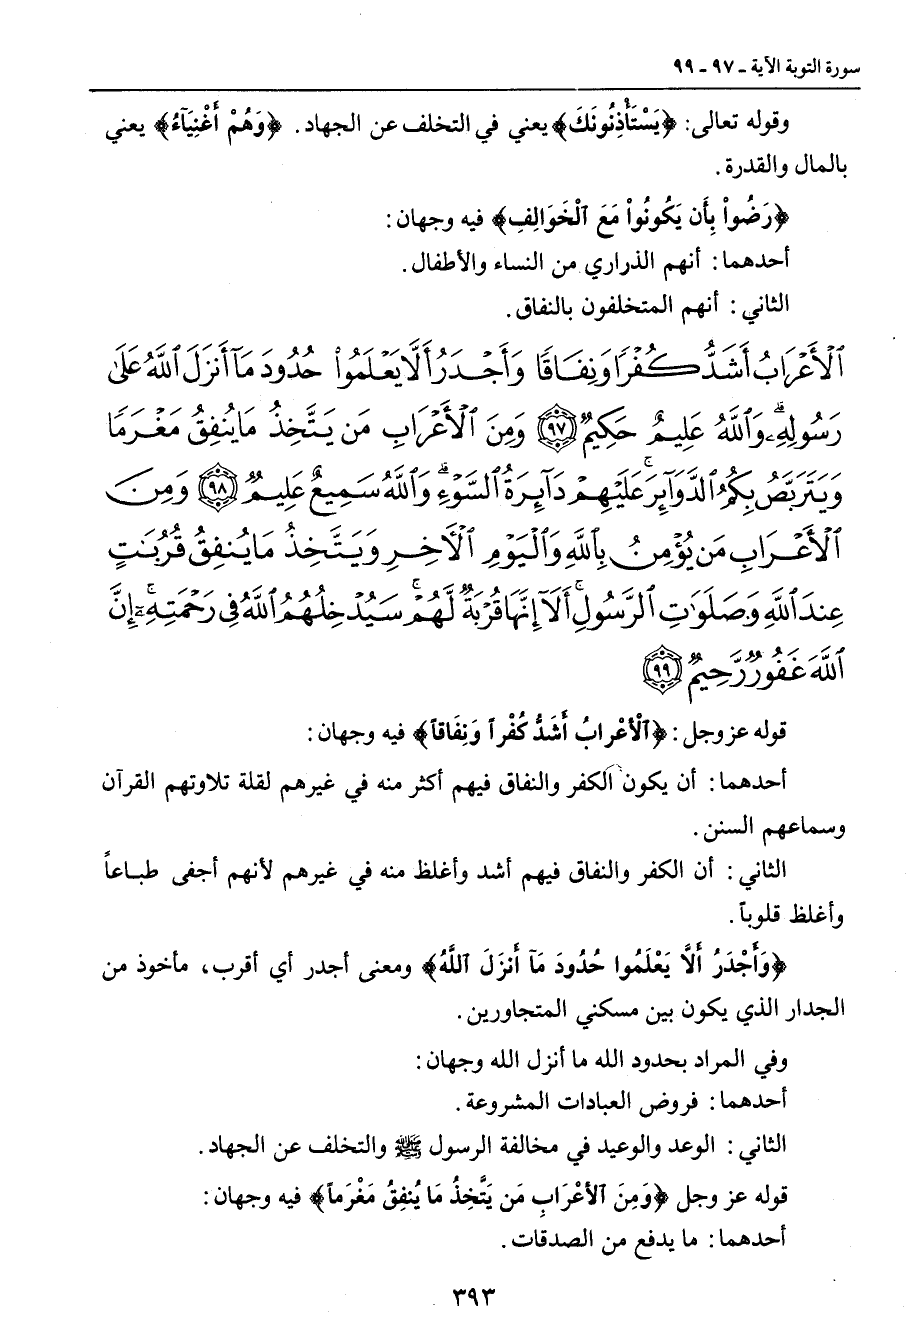 سورة التوبة الآية ـ ٩٧ ـ ٩٩
وقوله تعالى: ﴿يَسْتَأْذِنُونَكَ﴾ يعني في التخلف عن الجهاد. ﴿وَهُمْ أَغْنِيَآءُ﴾ يعني
بالمال والقدرة.
﴿رَضُواْ بِأَن يَكُونُواْ مَعَ ٱلْخَوَالِفِ﴾ فيه وجهان:
أحدهما: أنهم الذراري من النساء والأطفال.
الثاني: أنهم المتخلفون بالنفاق.
ٱلْأَعْرَابُ أَشَدُّ كُفْرًا وَنِفَاقًا وَأَجْدَرُ أَلَّا يَعْلَمُواْ حُدُودَ مَآ أَنزَلَ ٱللَّهُ عَلَىٰ
رَسُولِهِۦۗ وَٱللَّهُ عَلِيمٌ حَكِيمٌ ﴿٩٧﴾ وَمِنَ ٱلْأَعْرَابِ مَن يَتَّخِذُ مَا يُنفِقُ مَغْرَمًا
وَيَتَرَبَّصُ بِكُمُ ٱلدَّوَآئِرَۚ عَلَيْهِمْ دَآئِرَةُ ٱلسَّوْءِۗ وَٱللَّهُ سَمِيعٌ عَلِيمٌ ﴿٩٨﴾ وَمِنَ
ٱلْأَعْرَابِ مَن يُؤْمِنُ بِٱللَّهِ وَٱلْيَوْمِ ٱلْأَخِرِ وَيَتَّخِذُ مَا يُنفِقُ قُرُبَٰتٍ
عِندَ ٱللَّهِ وَصَلَوَٰتِ ٱلرَّسُولِۚ أَلَآ إِنَّهَا قُرْبَةٌ لَّهُمْۚ سَيُدْخِلُهُمُ ٱللَّهُ فِى رَحْمَتِهِۦٓۚ إِنَّ
ٱللَّهَ غَفُورٌ رَّحِيمٌ ﴿٩٩﴾
قوله عز وجل: ﴿ٱلْأَعْرَابُ أَشَدُّ كُفْراً وَنِفَاقاً﴾ فيه وجهان:
أحدهما: أن يكون الكفر والنفاق فيهم أكثر منه في غيرهم لقلة تلاوتهم القرآن
وسماعهم السنن.
الثاني: أن الكفر والنفاق فيهم أشد وأغلظ منه في غيرهم لأنهم أجفى طباعاً
وأغلظ قلوباً.
﴿وَأَجْدَرُ أَلَّا يَعْلَمُوا حُدُودَ مَآ أَنزَلَ ٱللَّهُ﴾ ومعنى أجدر أي أقرب، مأخوذ من
الجدار الذي يكون بين مسكني المتجاورين.
وفي المراد بحدود الله ما أنزل الله وجهان:
أحدهما: فروض العبادات المشروعة.
الثاني: الوعد والوعيد في مخالفة الرسول ﷺ والتخلف عن الجهاد.
قوله عز وجل ﴿وَمِنَ ٱلْأَعْرَابِ مَن يَتَّخِذُ مَا يُنفِقُ مَغْرَماً﴾ فيه وجهان:
أحدهما: ما يدفع من الصدقات.
٣٩٣